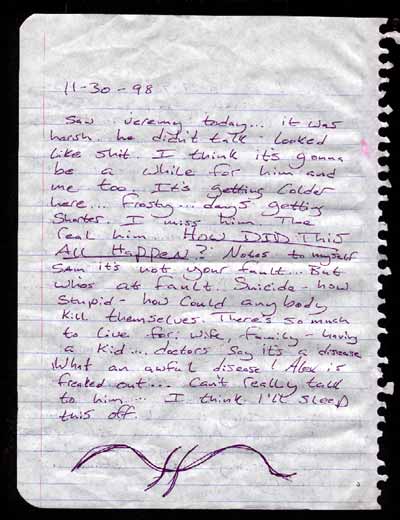 11-30-98
Saw Jeremy today... it was
harsh. he didn't talk - looked
like shit. I think it's gonna
be a while for him and
me too. It's getting colder
here... frosty... days getting
shorter. I miss him. The
real him... How DID This
All HAppen? Notes to myself
SAM it's not your fault... But
whos at fault. Suicide - how
stupid - how could anybody
kill themselves. There's so much
to live for. Wife, family - having
a kid... doctors say it's a disease
What an awful disease! Alex is
freaked out... Can't really talk
to him... I think I'll sleep
this off.